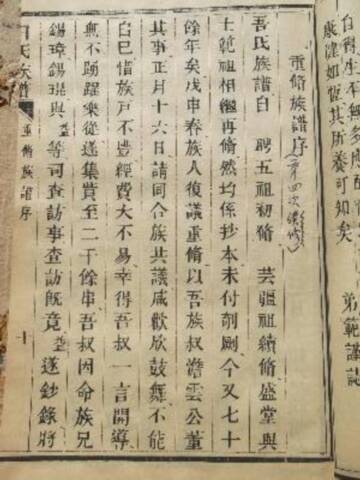 康健如恆其所養可知矣
弟範謹誌
重脩族譜序
吾氏族譜自 聘五祖初脩 芸疆祖續脩盛堂與
士範祖相繼再脩然均係抄本未付剞劂今又七十
餘年矣戊申春族人復議重脩以吾族叔澹雲公董
其事正月十六日請同合族共議咸歡欣鼓舞不能
自已惜族戶不豐經費大不易幸得吾叔一言開導
無不踴躍樂從遂集貲至二千餘串吾叔因命族兄
錫璋錫琨與瑩等司查訪事查訪旣竟瑩遂鈔錄將
氏族譜
重脩族譜序
十